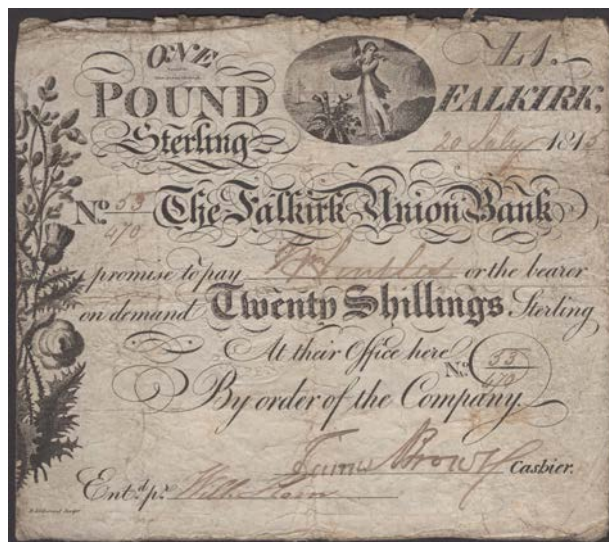 ONE £1.
POUND FALKIRK,
Sterling 20 July 1815
No. 53/470 The Falkirk Union Bank
promise to pay or the bearer
on demand Twenty Shillings Sterling
At their Office here No. 53/470
By order of the Company.
James Brown Cashier.
Ent.d p.r Will.